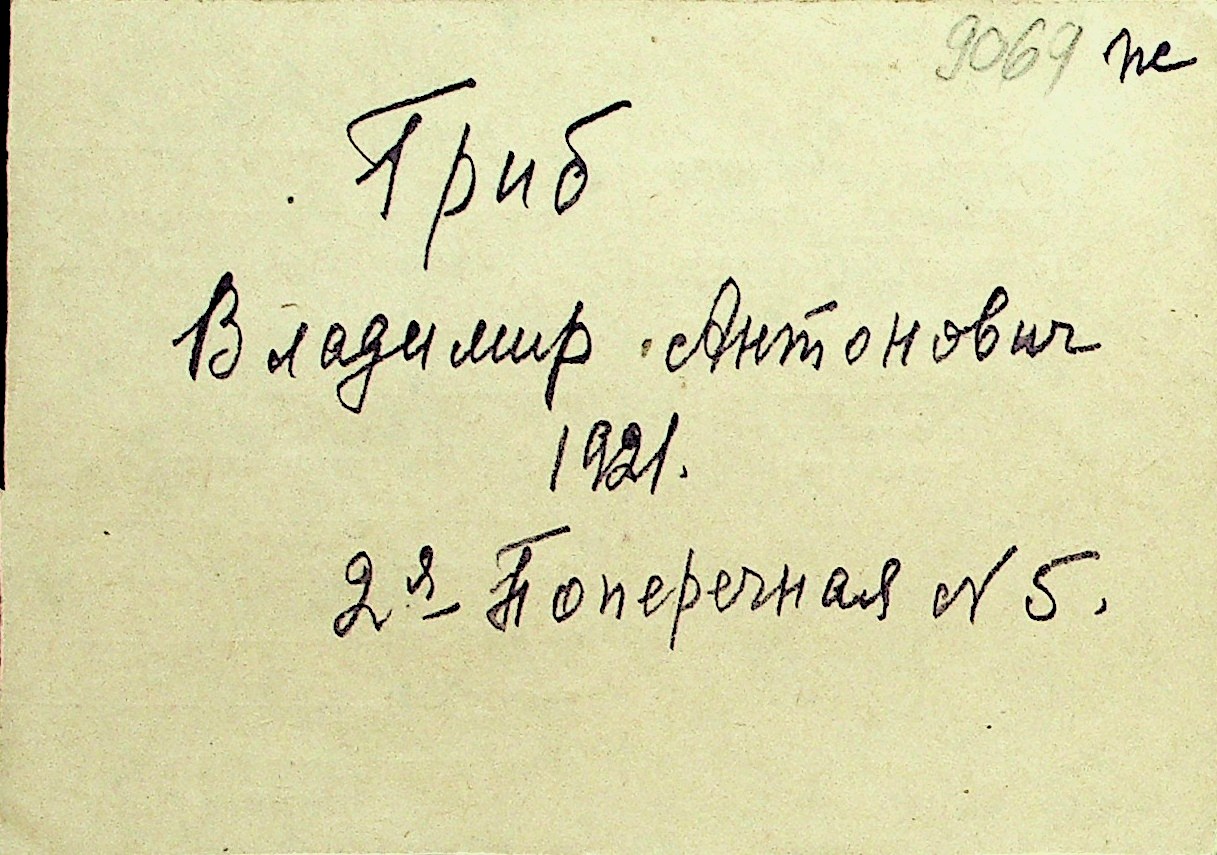 9069 пе
Гриб
Владимир Антонович
1921.
2я Поперечная N 5.